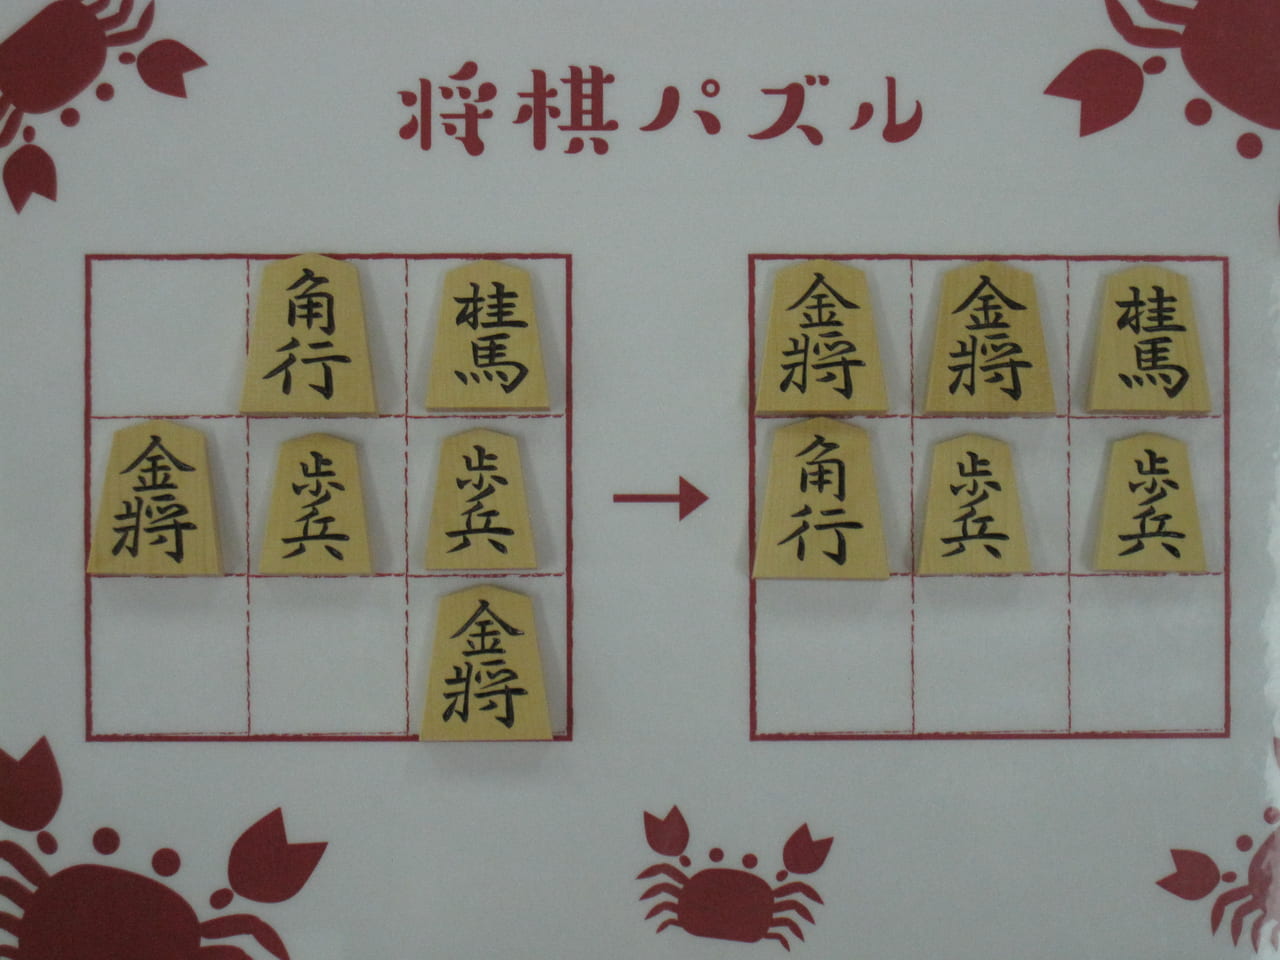 将棋パズル
角行 桂馬 金将 金将 桂馬
金将 歩兵 歩兵 角行 歩兵 歩兵
金将